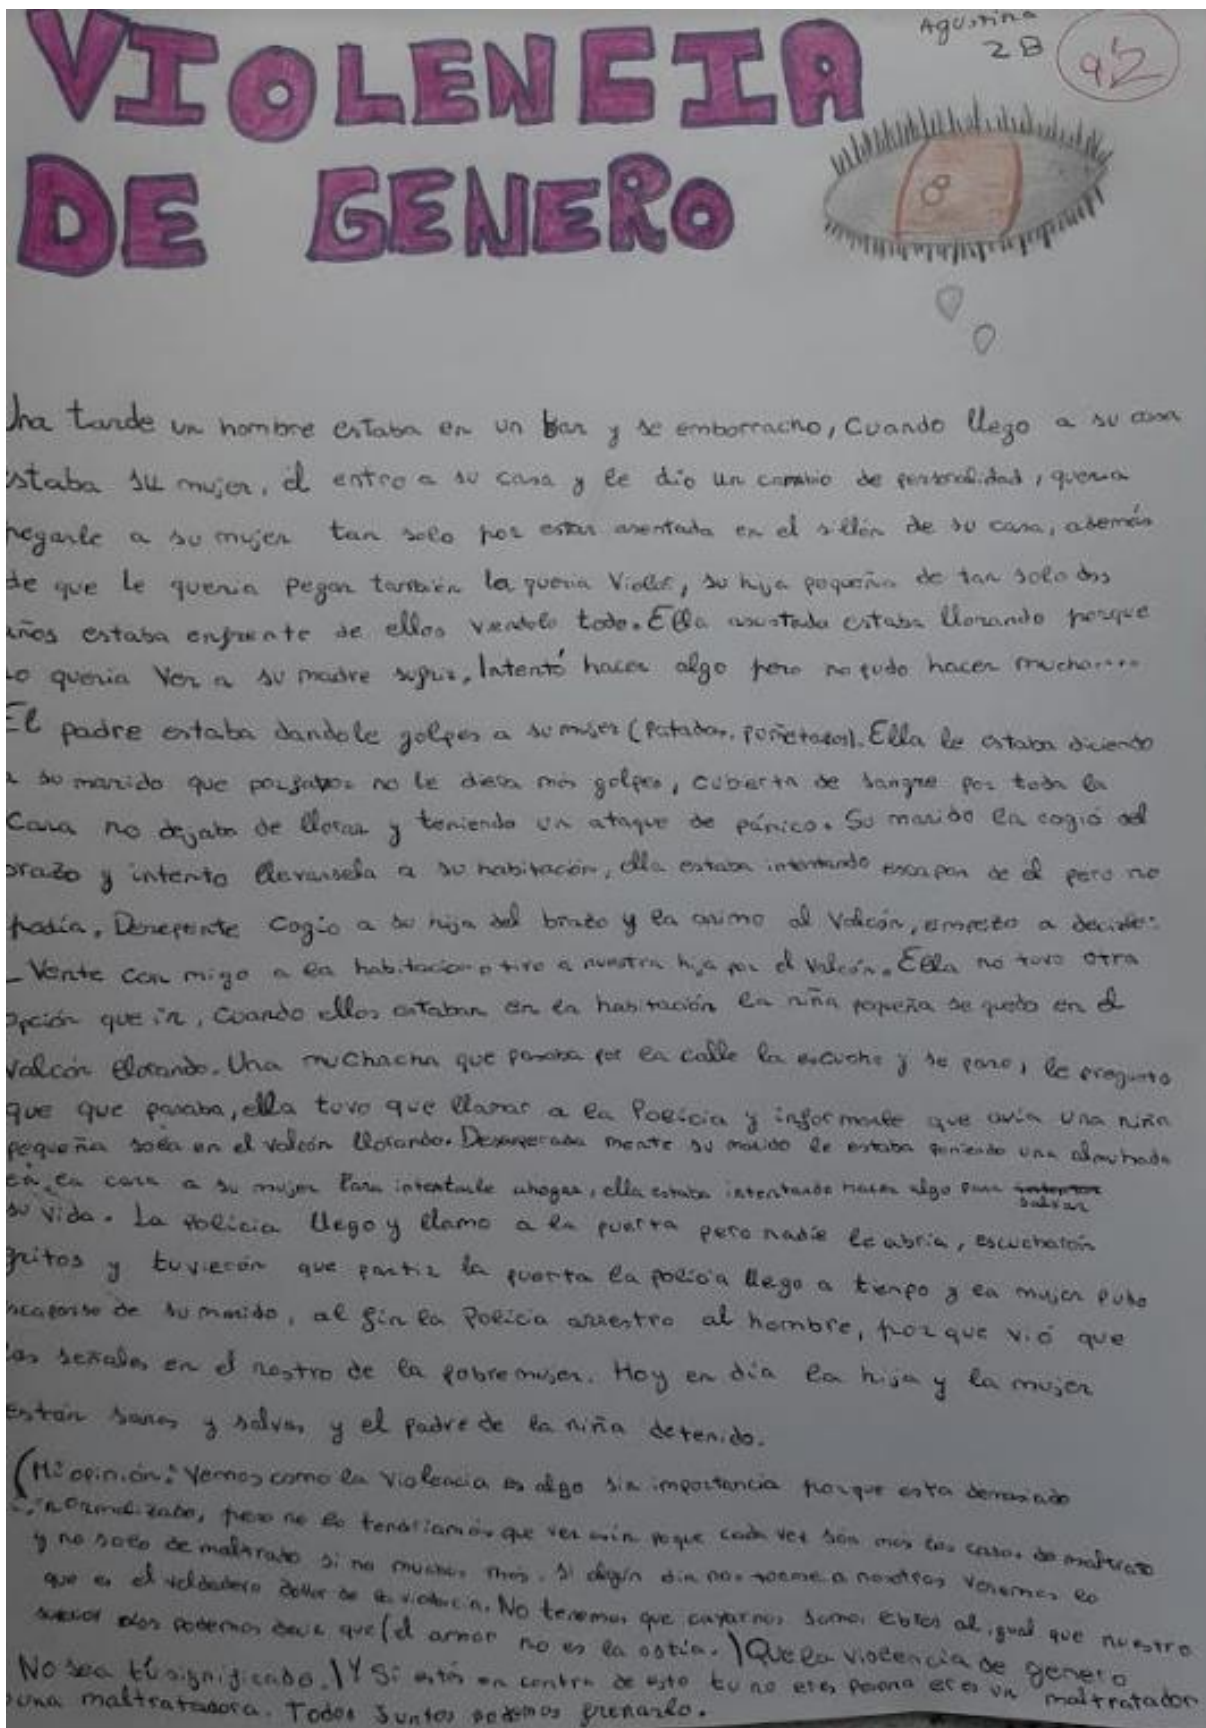 VIOLENCIA
DE GENERO
Agustina
2B
Una tarde un hombre estaba en un bar y se emborracho, Cuando llego a su casa
estaba su mujer, el entro a su casa y le dio un cambio de personalidad, queria
pegarle a su mujer tan solo por estar asentada en el sillón de su casa, además
de que le queria pegar también la queria Violar, su hija pequeña de tan solo dos
años estaba enfrente de ellos viendolo todo. Ella asustada estaba llorando porque
no queria Ver a su madre sufrir, Intentó hacer algo pero no pudo hacer mucho....
El padre estaba dandole golpes a su mujer (Patadas, Puñetazos). Ella le estaba diciendo
a su marido que porfabor no le diera más golpes, cubierta de sangre por toda la
Cara no dejaba de llorar y teniendo un ataque de pánico. Su marido la cogió del
brazo y intento llevarsela a su habitación, ella estaba intentando escapar de el pero no
podía, Derepente Cogio a su hija del brazo y la arimo al Valcón, empezo a decirle:
- Vente con migo a la habitacion o tiro a nuestra hija por el Valcón. Ella no tuvo otra
opción que ir, cuando ellos estaban en la habitación la niña pequeña se quedo en el
Valcón llorando. Una muchacha que pasaba por la calle la escucho y se paro, le pregunto
que que pasaba, ella tuvo que llamar a la Policia y informarle que avia una niña
pequeña sola en el valcón llorando. Desesperada mente su marido le estaba poniendo una almohada
en la cara a su mujer Para intentarle ahogar, ella estaba intentando hacer algo para salvar
su vida. La Policia llego y llamo a la puerta pero nadie le abria, escucharón
gritos y tuvierón que partir la puerta la policia llego a tiempo y la mujer pudo
escaparse de su marido, al fin la Policia arrestro al hombre, por que vió que
las señales en el rostro de la pobre mujer. Hoy en día la hija y la mujer
Están sanas y salvas, y el padre de la niña detenido.
(Mi opinión: Vemos como la Violencia es algo sin importancia porque esta demasiado
normalizado, pero no lo tendriamos que ver asin poque cada vez son mas los casos de maltrato
y no solo de maltrato si no muchos más. Si algún dia nos a nosotros veremos lo
que es el veldadero dolor de la violencia. No tenemos que cayarnos somos libres al igual que nuestro
podemos que (el amor no es la ostia.) Que la violencia de genero
No sea tu significado.) Y Si estás en contra de esto tu no eres persona eres un maltratador
o una maltratadora. Todos Juntos podemos frenarlo.